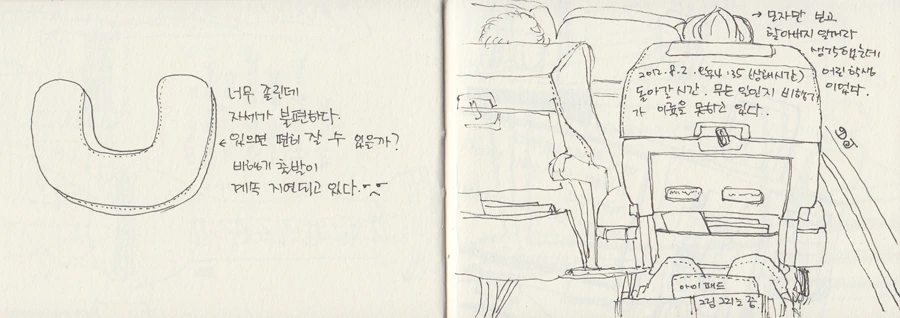 너무 졸린데
자세가 불편하다.
있으면 편히 잘 수 있을까?
비행기 출발이
계속 지연되고 있다.
→ 모자만 보고
할아버지 일거라
생각했는데
어린 학생
이었다.
2012.8.2. 오후4:35 (상해시간)
돌아갈 시간. 무슨 일인지 비행기
가 이륙을 못하고 있다.
아이패드
그림 그리는 중.